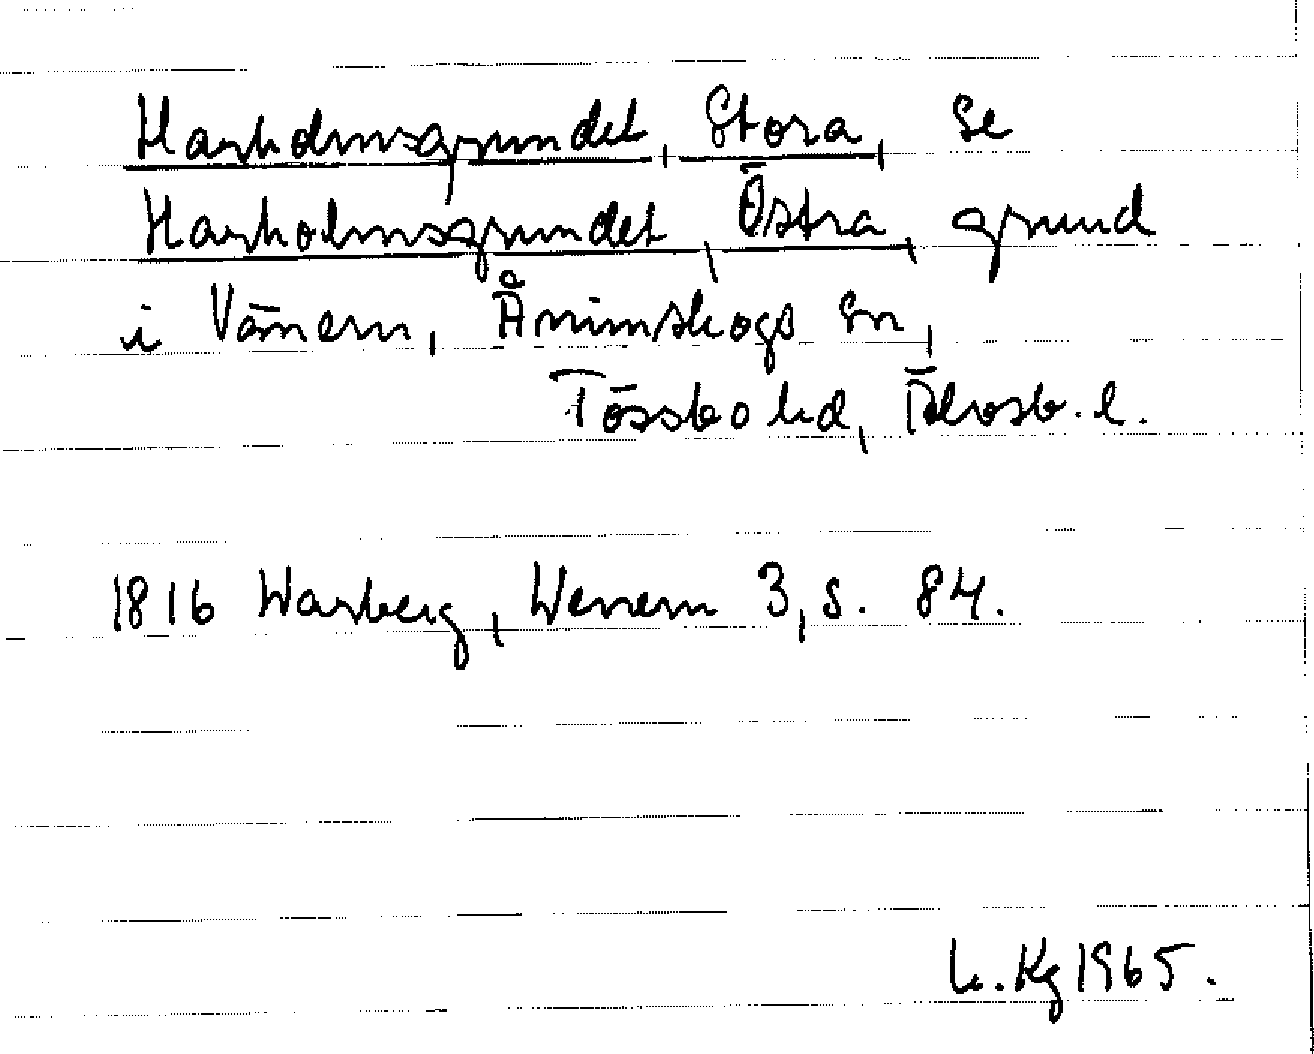 Harholmsgrundet, Stora, se
Harholmsgrundet, Östra, grund
i Vänern, Ånimskogs sn,
Tössbo hd, Älvsb. l.
1816 Warberg, Wenern 3, s. 84.
L. Kg 1965.